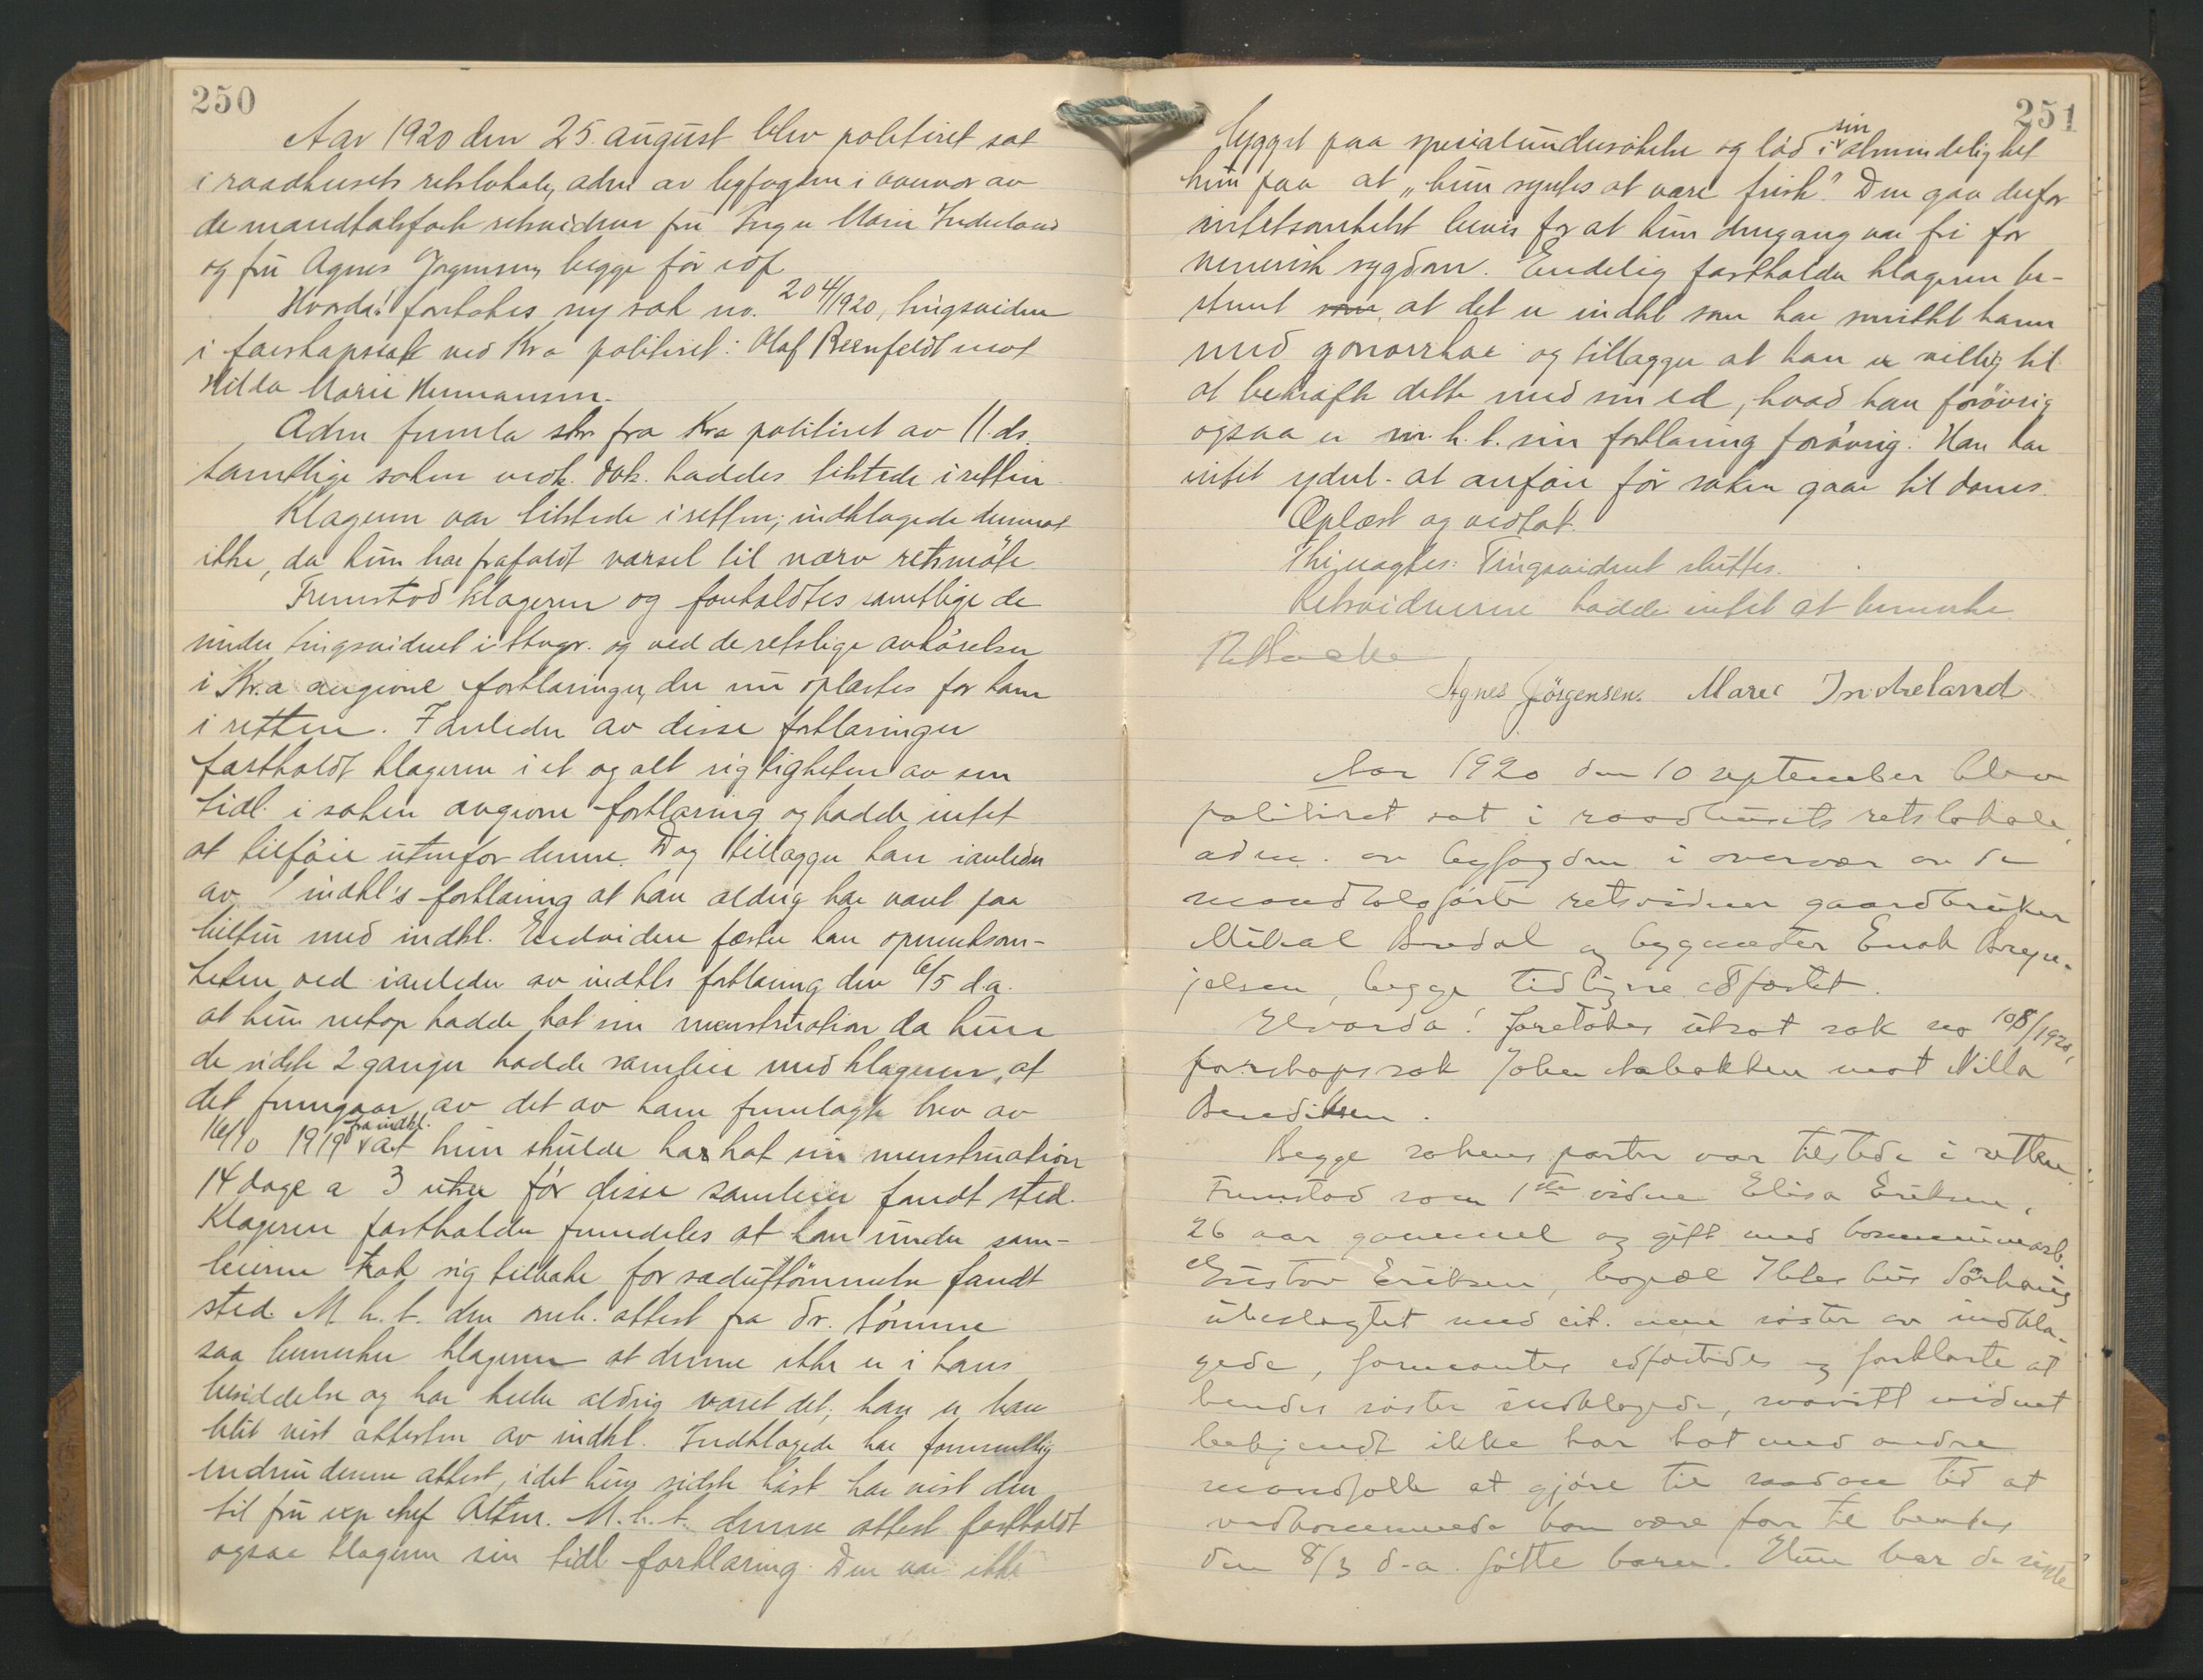 250
Aar 1920 den 25. august blev politiret sat
i raadhusets retslokale, adm av byfogden i overvær av
de mandtalsførte retsvidner fru Inger Marie Indreland
og fru Agnes Jørgensen, begge før edf.
Hvorda! foretokes ny sak no. 204/1920, tingsvidne
i farskapssak ved Kra politiret: Olaf Reenfeldt mot
Hilda Marie Hermansen.
Adm fremla skr fra Kra politiret av 11. ds.
Samtlige saken vedk. dok. haddes tilstede i retten.
Klageren var tilstede i retten; indklagede derimot
ikke, da hun har frafaldt varsel til nærv retsmøte.
Fremstod klageren og foreholdtes samtlige de
under tingsvidnet i Stvgr. og ved de retslige avhørelser
i Kr.a avgivne forklaringer, der nu oplæstes for ham
i retten. I anledn av disse forklaringer
fastholdt klageren i et og alt rigtigheten av sin
tidl. i saken avgivne forklaring og hadde intet
at tilføie utenfor denne. Dog tillægger han i anledn
av indkl's forklaring at han aldrig har vært paa
med indkl. Endvidere fæster han opmerksom-
heten ved i anledn av indkls forklaring den 6/5 d.a.
at hun netop hadde hat sin menstruation da hun
de sidste 2 ganger hadde samleie med klageren, at
det fremgaar av det av ham fremlagte brev av
16/10 1919 fra indkl. at hun skulde ha hat sin menstruation
14 dage a 3 uker før disse samleier fandt sted.
Klageren fastholder fremdeles at han under sam-
leierne trak sig tilbake før sæduttømmelse fandt
sted. M. h. t. den omh. attest fra dr. Sømme
saa bemerker klageren at denne ikke er i hans
besiddelse og har heller aldrig været det, han er bare
blit vist attesten av indkl. Indklagede har formentlig
endnu denne attest, idet hun sidste høst har vist den
til fru exp chef Altern. M. h. t. denne attest fastholdt
ogsaa klageren sin tidl forklaring. Den var ikke
251
bygget paa specialundersøkelse og lød i sin almindelighet
kun paa at "hun syntes at være frisk." Den gav derfor
intetsomhelst bevis for at hun dengang var fri for
venerisk sygdom. Endelig fastholder klageren be-
stemt at det er indkl som har smittet ham
med gonorrhae og tillægger at han er villig til
at bekræfte dette med sin ed, hvad han forøvrig
ogsaa er m. h. t. sin forklaring forøvrig. Han har
intet yderl. at anføre før saken gaar til doms.
Oplæst og vedtat.
Thi eragtes: Tingsvidnet sluttes.
Retsvidnerne hadde intet at bemerke.
Agnes Jörgensen. Marie Indreland
Aar 1920 den 10 september blev
politiret sat i raadhusets retslokale
adm. av byfogden i overvær av de
mandtalsførte retsvidner gaardbruker
Mikal Bredal og bygmester Enok Bryn-
jelsen, begge tidligere edfæstet.
Hvorda! foretokes utsat sak no 108/1920,
farskapssak John Aabakken mot Nilla
Benediktsen.
Begge sakens parter var tilstede i retten.
Fremstod som 1ste vidne Elisa Eriksen,
26 aar gammel og gift med kommunearb.
Gustav Eriksen, bopæl Ibles hus Sörhaug
ubeslegtet med cit. men søster av indkla-
gede, formantes edfæstedes og forklarte at
hendes søster indklagede, saavitt vidnet
bekjendt ikke har hat med andre
mandfolk at gjøre til saadan tid at
vedkommende kan være far til hendes
den 8/3 d.a. fødte barn. Hun har de siste